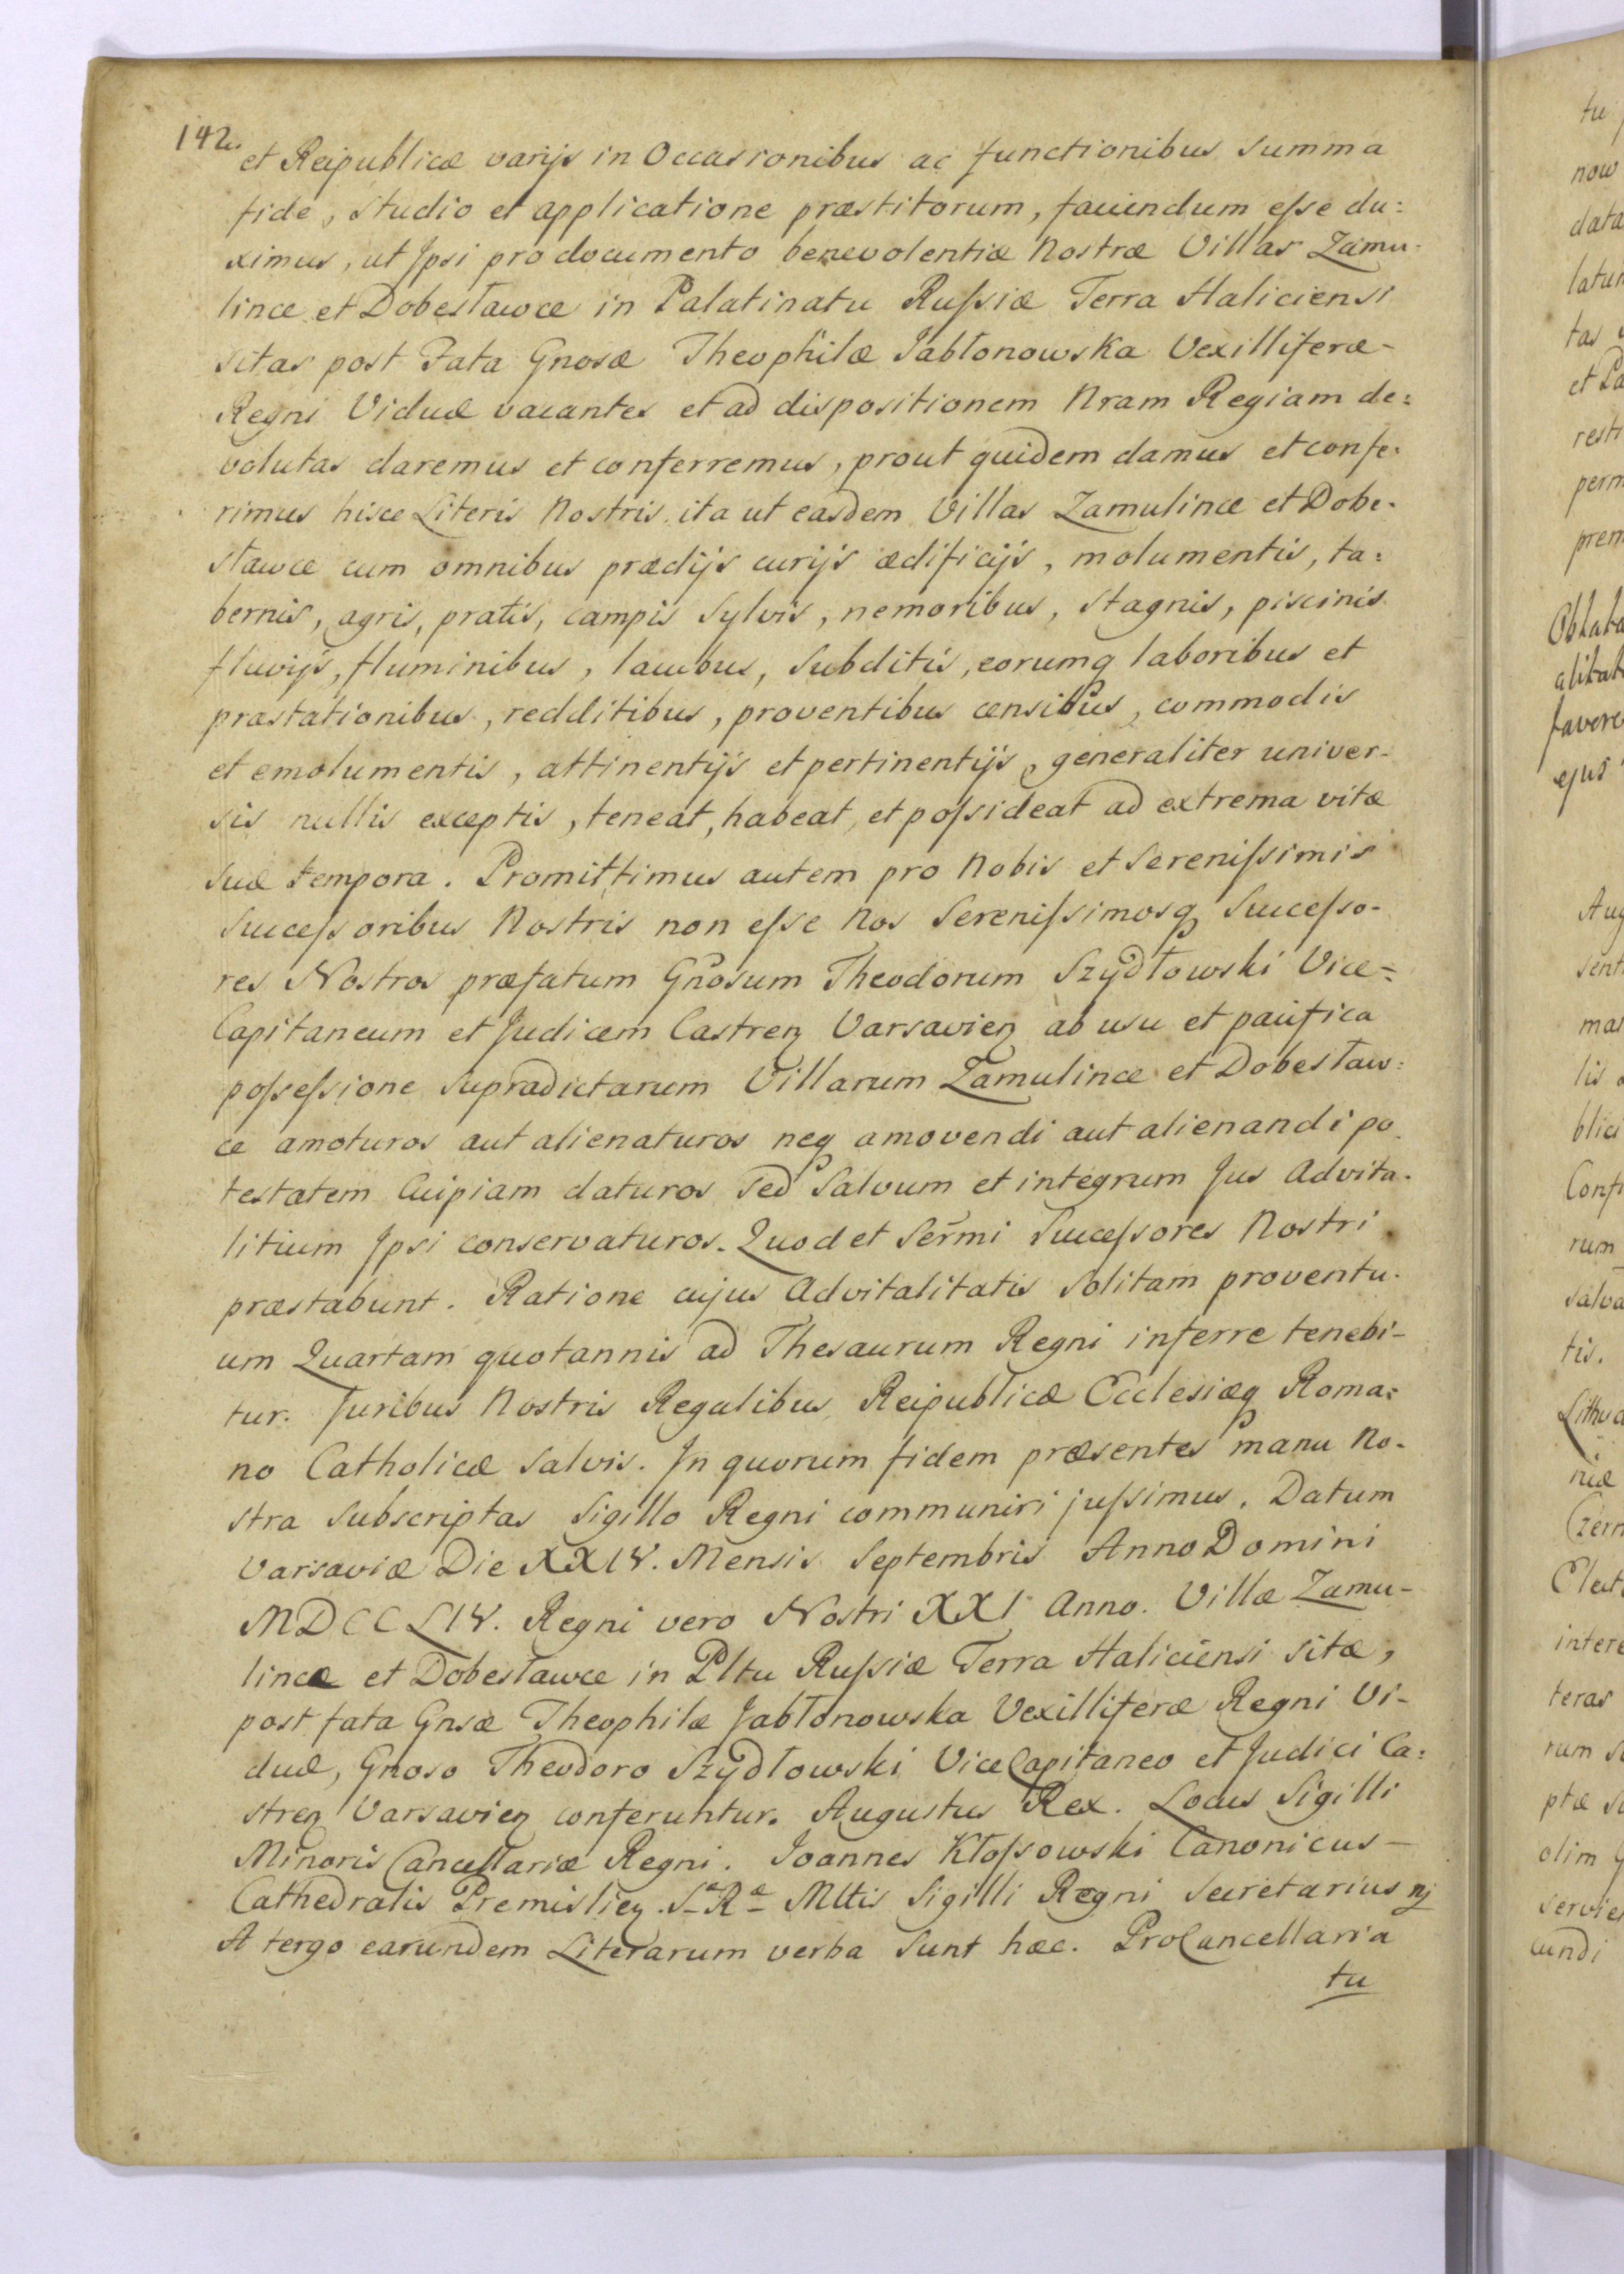 142.
et Reipublicæ varijs in Occasionibus ac functionibus summa
fide, studio et applicatione præstitorum, faciendum eſse du:
ximus, ut Ipsi pro documento benevolentiæ Nostræ Villas Zamu-
lince et Dobesławce in Palatinatu Ruſsiæ Terra Haliciensi
sitas post Fata Gnosæ Theophilæ Jabłonowska Vexilliferæ-
Regni Viduæ vacantes et ad dispositionem Nram Regiam de:
volutas daremus et conferremus, prout quidem damus et confe:
rimus hisce Literis Nostris, ita ut easdem Villas Zamulince et Dobe-
sławce cum omnibus prædijs curijs ædificijs, molumentis, ta:
bernis, agris, pratis, campis Sylvis, nemoribus, stagnis, piscinis
fluvijs, fluminibus, lacubus, Subditis, eorumq laboribus et
præstationibus, redditibus, proventibus censibus, commodis
et emolumentis, attinentijs et pertinentijs, generaliter univer-
sis nullis exceptis, teneat, habeat, et poſsideat ad extrema vitæ
suæ tempora. Promittimus autem pro Nobis et Sereniſsimis
Succeſsoribus Nostris non eſse Nos Sereniſsimosq Succeſso-
res Nostros præfatum Gnosum Theodorum Szydłowski Vice=
Capitaneum et Judicem Castren Varsavien ab usu et pacifica
poſseſsione supradictarum Villarum Zamulince et Dobesław:
ce amoturos aut alienaturos neq amovendi aut alienandi po-
testatem Cuipiam daturos sed Salvum et integrum Jus Advita-
litium Ipsi conservaturos. Quod et Sermi Succeſsores Nostri
præstabunt. Ratione cujus Advitalitatis solitam proventu-
um Quartam quotannis ad Thesaurum Regni inferre tenebi-
tur. Juribus Nostris Regalibus Reipublicæ Ecclesiæq Roma:
no Catholicæ salvis. In quorum fidem præsentes manu No-
stra subscriptas Sigillo Regni communiri juſsimus. Datum
Varsaviæ Die XXIV. Mensis Septembris Anno Domini
MDCCLIV. Regni vero Nostri XXI Anno. Villæ Zamu-
lincæ et Dobesławce in Pltu Ruſsiæ Terra Haliciensi sitæ,
post fata Gnsæ Theophilæ Jabłonowska Vexilliferæ Regni Vi-
duæ, Gnoso Theodoro Szydłowski ViceCapitaneo et Judici Ca:
stren Varsavien conferuntur. Augustus Rex. Locus Sigilli
Minoris Cancellariæ Regni. Joannes Kłoſsowski Canonicus-
Cathedralis Premislien. Sæ Ræ Mttis Sigilli Regni Secretarius mj
A tergo earundem Literarum verba sunt hæc. ProCancellaria
tu